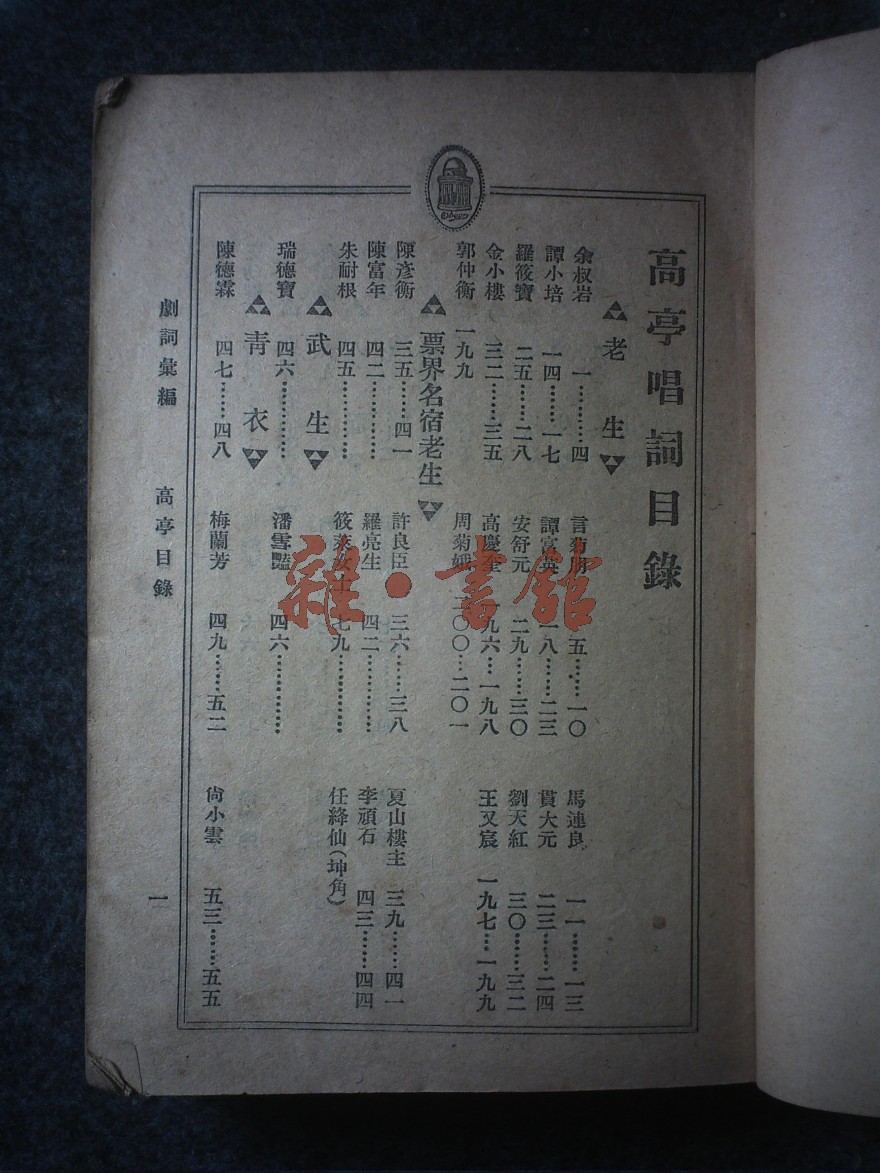 高亭唱詞目錄
老生
余叔岩 一…………四 言菊朋 五……一〇 馬連良 一一……一三
譚小培 一四……一七 譚富英 一八……二三 貫大元 二三……二四
羅筱寶 二五……二八 安舒元 二九……三〇 劉天紅 三〇……三二
金小樓 三二……三五 高慶奎 一九六…一九八 王又宸 一九七…一九九
郭仲衡 一九九 周菊娥 二〇〇…二〇一
票界名宿老生
陳彥衡 三五……四一 許良臣 三六……三八 夏山樓主 三九……四一
陳富年 四二………… 羅亮生 四二………… 李頑石 四三……四四
朱耐根 四五………… 筱萊女士 七九………… 任絳仙(坤角)
武生
瑞德寶 四六………… 潘雪豔 四六…………
青衣
陳德霖 四七……四八 梅蘭芳 四九……五二 尙小雲 五三……五五
劇詞彙編 高亭目錄 一
雜·書館